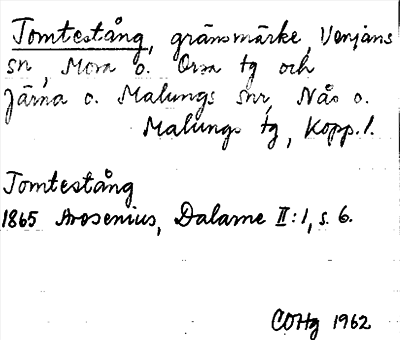 Tomtestång, gränsmärke, Venjans
sn, Mora o. Orsa tg och
Järna o. Malungs snr, Nås o.
Malungs tg, Kopp. l.
Tomtestång
1865 Arosenius, Dalarne II:1, s. 6.
COHg 1962